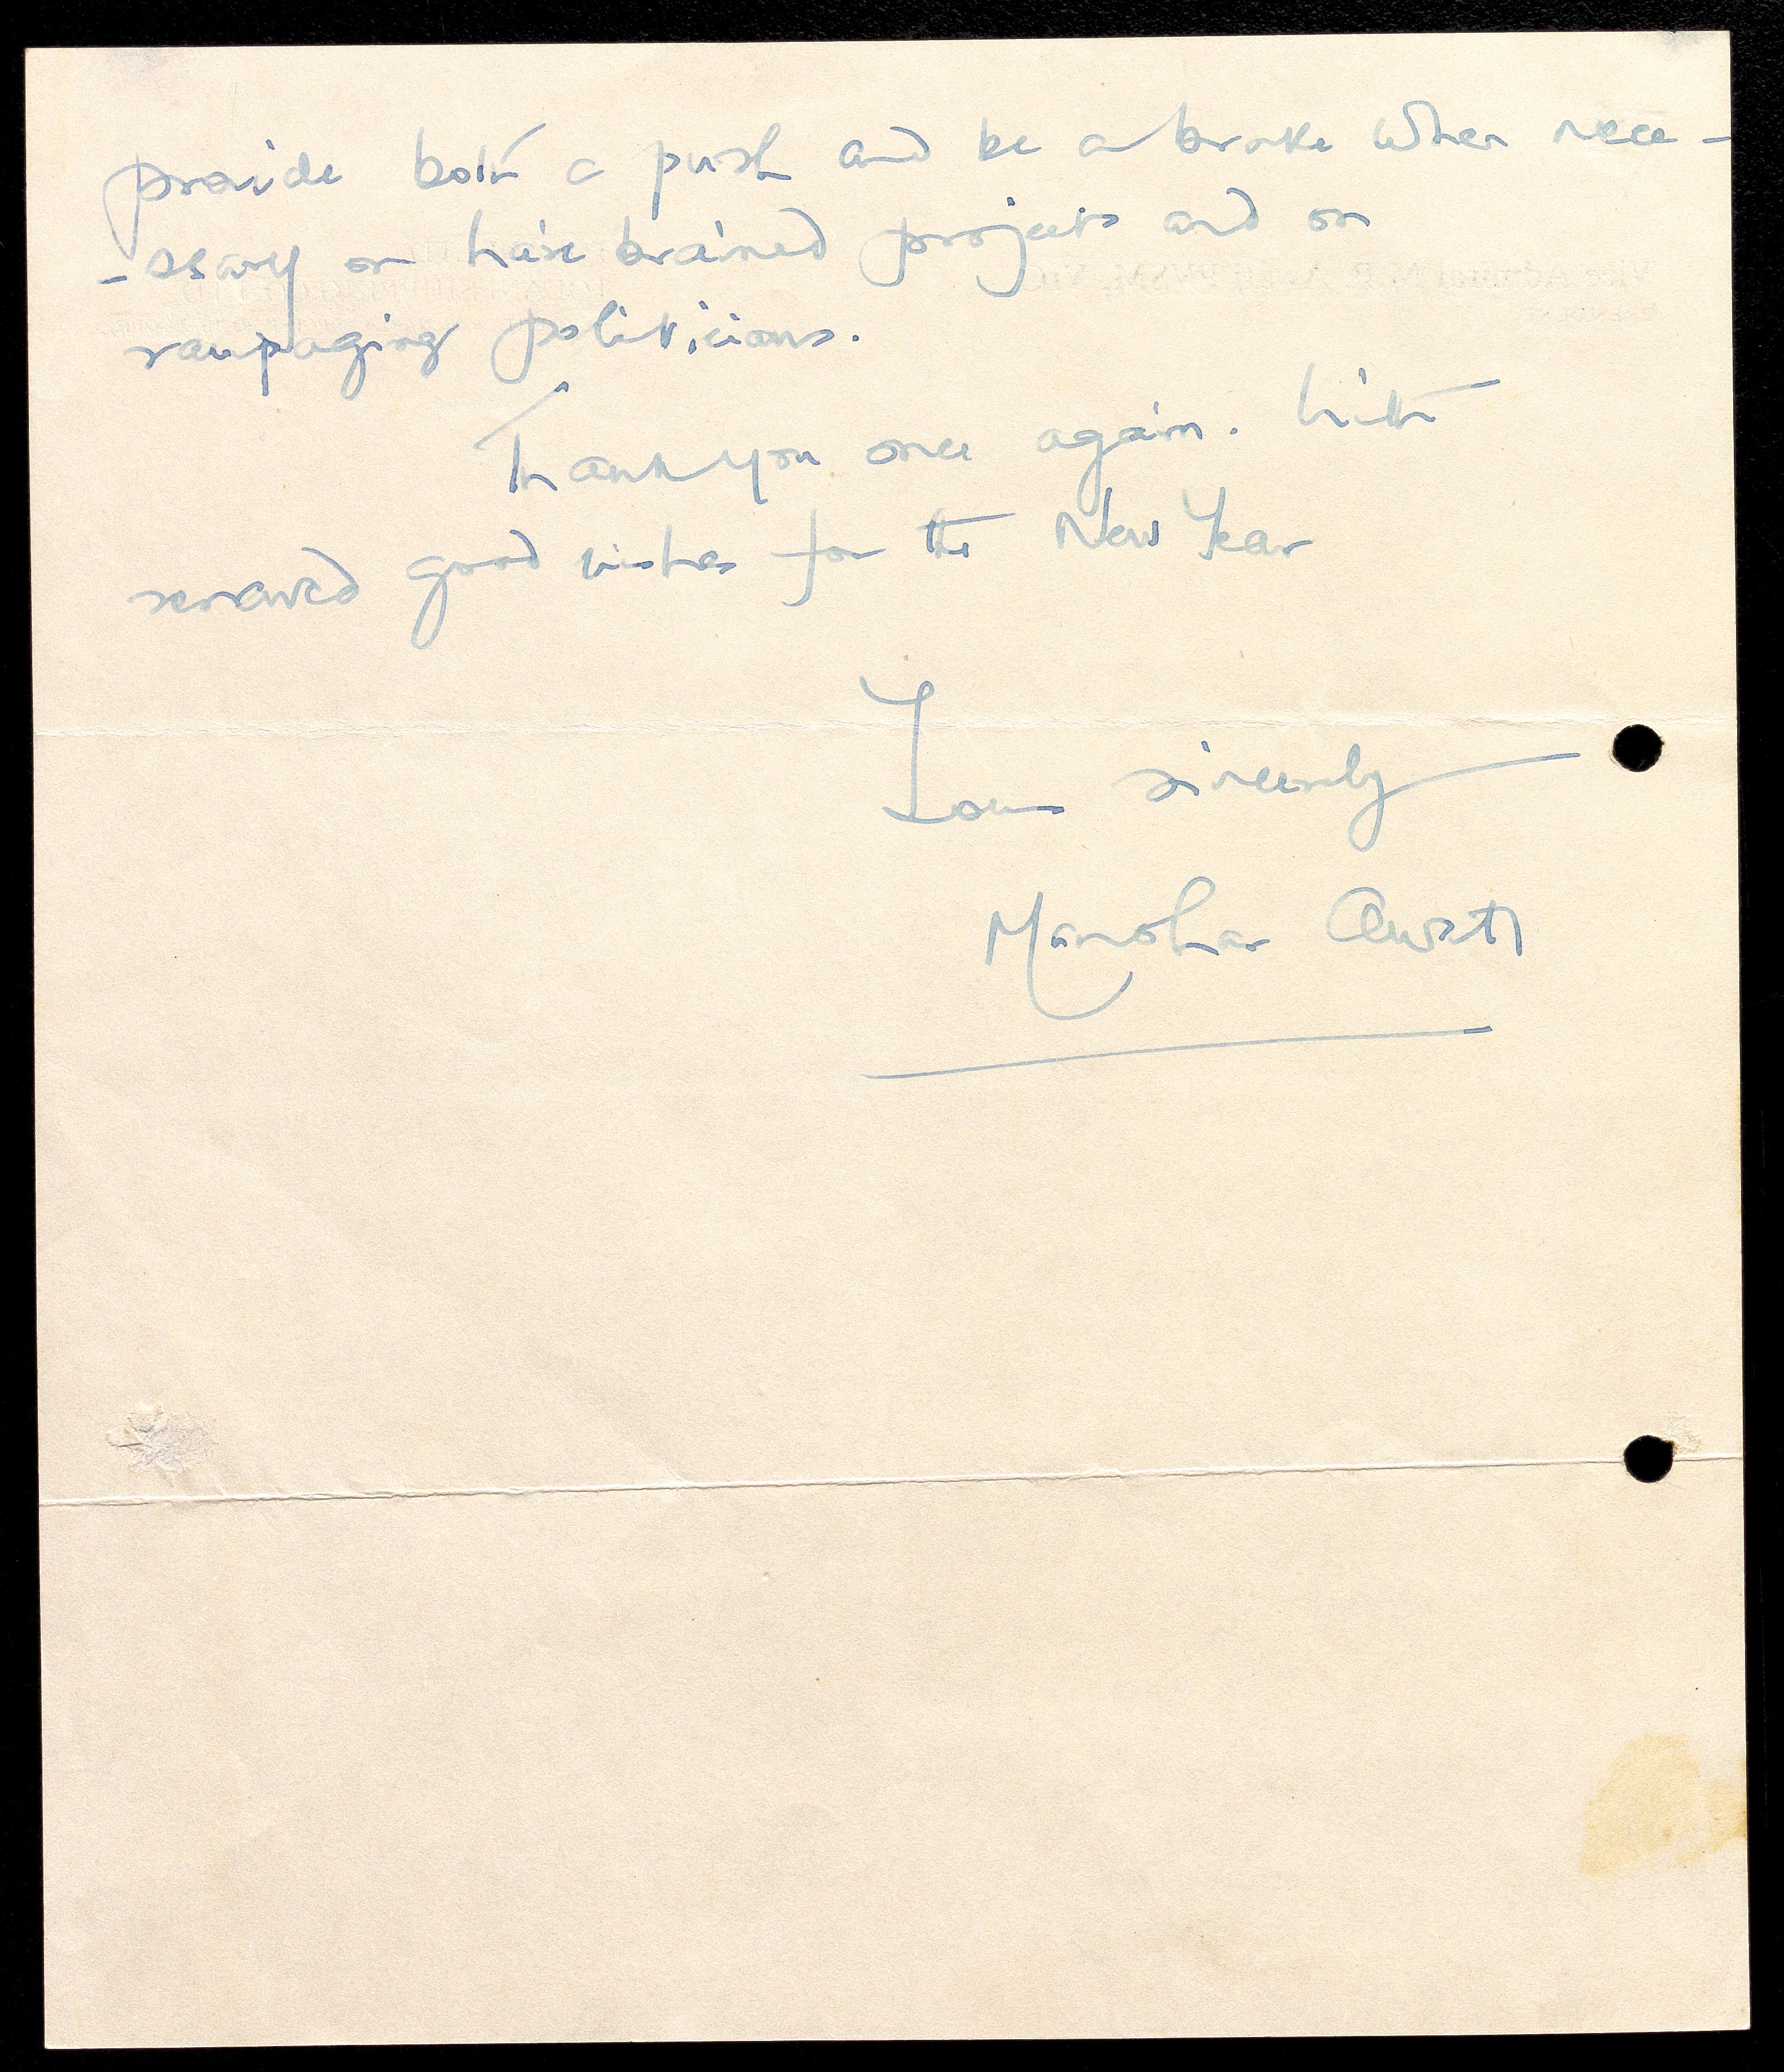 provide both a push and be a brake when nece-
-ssary on haire brained projects and on
rampaging politicians.
Thank you once again. With
renewed good wishes for the New Year
Yours sincerely
Manohar Awati